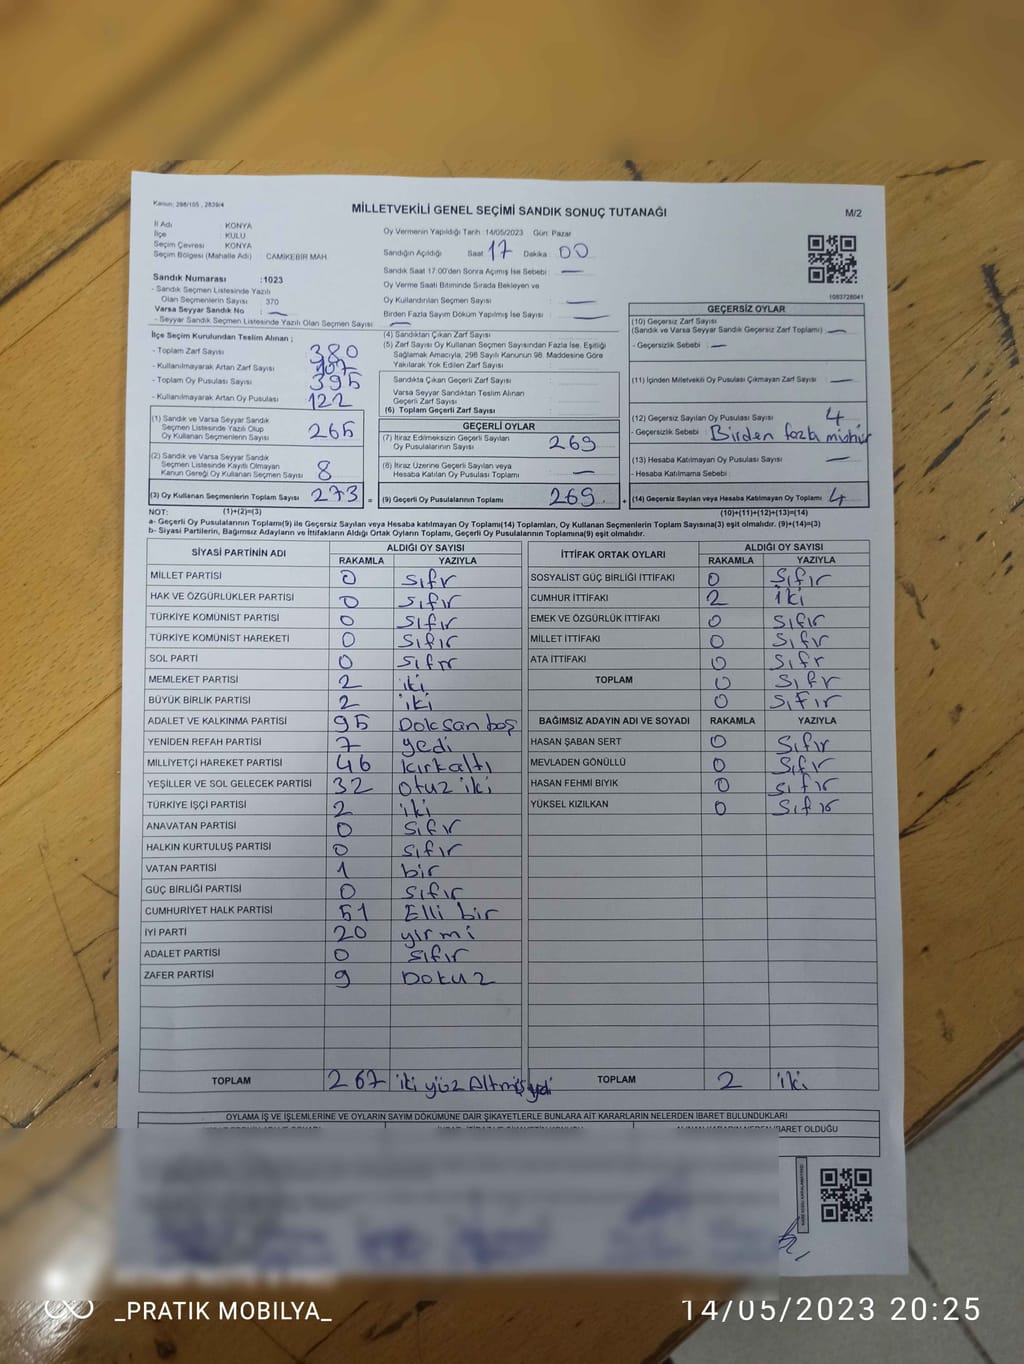 Kanun: 298/105 , 2839/4
MİLLETVEKİLİ GENEL SEÇİMİ SANDIK SONUÇ TUTANAĞI
M/2
İl Adı : KONYA
İlçe : KULU
Seçim Çevresi : KONYA
Seçim Bölgesi (Mahalle Adı) : CAMİKEBİR MAH.
Sandık Numarası :1023
- Sandık Seçmen Listesinde Yazılı
Olan Seçmenlerin Sayısı : 370
Varsa Seyyar Sandık No : —
- Seyyar Sandık Seçmen Listesinde Yazılı Olan Seçmen Sayısı : —
Oy Vermenin Yapıldığı Tarih :14/05/2023 Gün: Pazar
Sandığın Açıldığı Saat : 17 Dakika : 00
Sandık Saat 17.00'den Sonra Açımış İse Sebebi : —
Oy Verme Saati Bitiminde Sırada Bekleyen ve
Oy Kullandırılan Seçmen Sayısı : —
Birden Fazla Sayım Döküm Yapılmış İse Sayısı : —
1083728041
İlçe Seçim Kurulundan Teslim Alınan ;
- Toplam Zarf Sayısı : 380
- Kullanılmayarak Artan Zarf Sayısı : 107
- Toplam Oy Pusulası Sayısı : 395
- Kullanılmayarak Artan Oy Pusulası : 122
(1) Sandık ve Varsa Seyyar Sandık
Seçmen Listesinde Yazılı Olup
Oy Kullanan Seçmenlerin Sayısı : 265
(2) Sandık ve Varsa Seyyar Sandık
Seçmen Listesinde Kayıtlı Olmayan
Kanun Gereği Oy Kullanan Seçmen Sayısı : 8
(3) Oy Kullanan Seçmenlerin Toplam Sayısı : 273 =
(4) Sandıktan Çıkan Zarf Sayısı :
(5) Zarf Sayısı Oy Kullanan Seçmen Sayısından Fazla İse, Eşitliği
Sağlamak Amacıyla, 298 Sayılı Kanunun 98. Maddesine Göre
Yakılarak Yok Edilen Zarf Sayısı :
Sandıkta Çıkan Geçerli Zarf Sayısı :
Varsa Seyyar Sandıktan Teslim Alınan
Geçerli Zarf Sayısı :
(6) Toplam Geçerli Zarf Sayısı :
GEÇERLİ OYLAR
(7) İtiraz Edilmeksizin Geçerli Sayılan
Oy Pusulalarının Sayısı : 269
(8) İtiraz Üzerine Geçerli Sayılan veya
Hesaba Katılan Oy Pusulası Toplamı : —
(9) Geçerli Oy Pusulalarının Toplamı : 269 +
GEÇERSİZ OYLAR
(10) Geçersiz Zarf Sayısı
(Sandık ve Varsa Seyyar Sandık Geçersiz Zarf Toplamı) : —
- Geçersizlik Sebebi : —
(11) İçinden Milletvekili Oy Pusulası Çıkmayan Zarf Sayısı : —
(12) Geçersiz Sayılan Oy Pusulası Sayısı : 4
- Geçersizlik Sebebi : Birden fazla mühür
(13) Hesaba Katılmayan Oy Pusulası Sayısı : —
- Hesaba Katılmama Sebebi :
(14) Geçersiz Sayılan veya Hesaba Katılmayan Oy Toplamı : 4
NOT: (1)+(2)=(3)
(10)+(11)+(12)+(13)=(14)
a- Geçerli Oy Pusulalarının Toplamı(9) ile Geçersiz Sayılan veya Hesaba katılmayan Oy Toplamı(14) Toplamları, Oy Kullanan Seçmenlerin Toplam Sayısına(3) eşit olmalıdır. (9)+(14)=(3)
b- Siyasi Partilerin, Bağımsız Adayların ve İttifakların Aldığı Ortak Oyların Toplamı, Geçerli Oy Pusulalarının Toplamına(9) eşit olmalıdır.
SİYASİ PARTİNİN ADI ALDIĞI OY SAYISI
RAKAMLA YAZIYLA
MİLLET PARTİSİ 0 sıfır
HAK VE ÖZGÜRLÜKLER PARTİSİ 0 sıfır
TÜRKİYE KOMÜNİST PARTİSİ 0 sıfır
TÜRKİYE KOMÜNİST HAREKETİ 0 sıfır
SOL PARTİ 0 sıfır
MEMLEKET PARTİSİ 2 iki
BÜYÜK BİRLİK PARTİSİ 2 iki
ADALET VE KALKINMA PARTİSİ 95 Doksan beş
YENİDEN REFAH PARTİSİ 7 yedi
MİLLİYETÇİ HAREKET PARTİSİ 46 kırkaltı
YEŞİLLER VE SOL GELECEK PARTİSİ 32 otuz iki
TÜRKİYE İŞÇİ PARTİSİ 2 iki
ANAVATAN PARTİSİ 0 sıfır
HALKIN KURTULUŞ PARTİSİ 0 sıfır
VATAN PARTİSİ 1 bir
GÜÇ BİRLİĞİ PARTİSİ 0 sıfır
CUMHURİYET HALK PARTİSİ 51 Elli bir
İYİ PARTİ 20 yirmi
ADALET PARTİSİ 0 sıfır
ZAFER PARTİSİ 9 Dokuz
TOPLAM 267 iki yüz Altmış yedi
İTTİFAK ORTAK OYLARI ALDIĞI OY SAYISI
RAKAMLA YAZIYLA
SOSYALİST GÜÇ BİRLİĞİ İTTİFAKI 0 Sıfır
CUMHUR İTTİFAKI 2 iki
EMEK VE ÖZGÜRLÜK İTTİFAKI 0 Sıfır
MİLLET İTTİFAKI 0 Sıfır
ATA İTTİFAKI 0 Sıfır
TOPLAM 0 Sıfır
0 Sıfır
BAĞIMSIZ ADAYIN ADI VE SOYADI RAKAMLA YAZIYLA
HASAN ŞABAN SERT 0 Sıfır
MEVLADEN GÖNÜLLÜ 0 Sıfır
HASAN FEHMİ BIYIK 0 sıfır
YÜKSEL KIZILKAN 0 Sıfır
TOPLAM 2 iki
OYLAMA İŞ VE İŞLEMLERİNE VE OYLARIN SAYIM DÖKÜMÜNE DAİR ŞİKAYETLERLE BUNLARA AİT KARARLARIN NELERDEN İBARET BULUNDUKLARI
İBARET OLDUĞU
_PRATIK MOBILYA_
14/05/2023 20:25